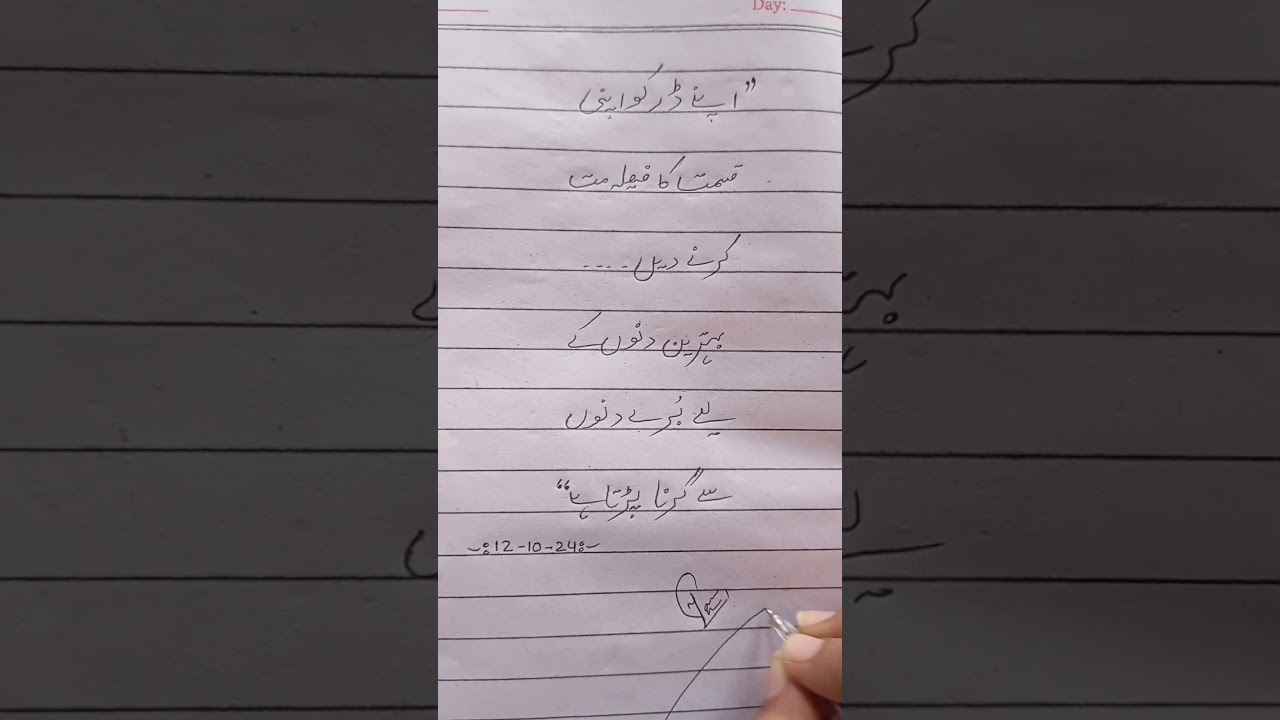 Day:
”اپنے ڈر کو اپنی
قسمت کا فیصلہ مت
کرنے دیں ....
بہترین دنوں کے
لیے بُرے دنوں
سے گزنا پڑتا ہے“
~:12-10-24:~